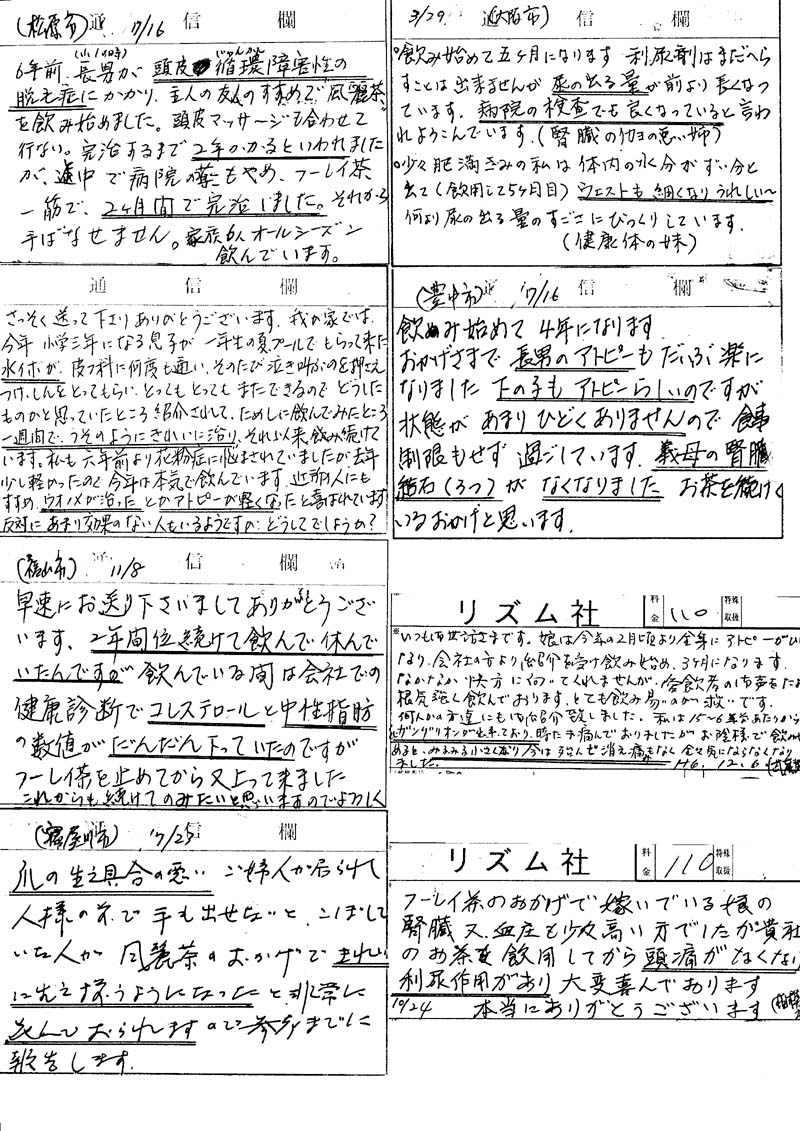 (松原市) 通 7/16 信 欄
(小1の時)
6年前、長男が頭皮循環障害性の
じゅんかん
脱毛症にかかり、主人の友人のすすめで風麗茶
を飲み始めました。頭皮マッサージも合わせて
行ない。完治するまで2年かかるといわれました
が、途中で病院の薬もやめ、フーレイ茶
一筋で、2ヶ月間で完治しました。それから
手ばなせません。家族6人オールシーズン
飲んでいます。
通 信 欄
さっそく送って下さりありがとうございます。我が家では、
今年小学三年になる息子が一年生の夏プールでもらって来た
水イボが、皮フ科に何度も通い、そのたび泣き叫ぶのを押さえ
つけ、しんをとってもらい、とってもとってもまたできるので どうした
ものかと思っていたところ紹介されて、ためしに飲んでみたところ
一週間で、うそのようにきれいに治り、それ以来飲み続けて
います。私も六年前より花粉症に悩まされていましたが去年
少し軽かったので今年は本気で飲んでいます。近所の人にも
すすめ、ウオノメが治ったとかアトピーが軽くなったと喜ばれています
反対にあまり効果のない人もいるようですが、どうしてでしょうか?
(福山市) 通 11/8 信 欄
早速にお送り下さいましてありがとうござ
います、2年間位続けて飲んで休んで
いたんですが飲んでいる間は会社での
健康診断でコレステロールと中性脂肪
の数値がだんだん下っていたのですが
フーレイ茶を止めてから又上って来ました
これからも続けてのみたいと思いますのでよろしく
(寝屋川市) 通 7/25 信 欄
爪の生え具合の悪い ご婦人が居られて
人様の前で手も出せないと、こぼして
いた人が 風麗茶のおかげで きれい
に生え揃うようになったと非常に
喜んでおられますので参考までに
報告します。
3/29 通 (大阪市) 信 欄
○飲み始めて五ヶ月になります 利尿剤はまだへら
すことは出来ませんが尿の出る量が前より良くなっ
ています。病院の検査でも良くなっていると言わ
れよろこんでいます。(腎臓の悪い姉)
○少々肥満ぎみの私は体内の水分がずい分と
出て(飲用して5ヶ月目)ウエストも細くなりうれしい〜
何より尿の出る量のすごさにびっくりしています。
(健康体の妹)
(豊中市) 通 7/16 信 欄
飲み始めて4年になります
おかげさまで長男のアトピーもだいぶ楽に
なりました 下の子もアトピーらしいのですが
状態があまりひどくありませんので食事
制限もせず過ごしています。義母の腎臓
結石(3つ)がなくなりました お茶を続けて
いるおかげと思います.
リズム社 料金 110 特殊取扱
※いつもお世話さまです。娘は今年の2月頃より全身にアトピーがひ
なり、会社の方より紹介を受け飲み始め、3ヶ月になります。
なかなか快方に向ってくれませんが、
根気強く飲んでおります。とても飲み易いのが救いです。
何人かの友達にもご紹介致しました。私は15〜6年前から
ガングリオンが出来ており、時たま痛んでおりましたがお陰様で飲み
あると、みるみる小さくなり今はぜんぜん消え痛みもなく全く気にならなくなり
ました。 H6.12.6
リズム社 料金 110 特殊取扱
フーレイ茶のおかげで嫁いでいる娘の
腎臓又、血圧と少々高い方でしたが貴社
のお茶を飲用してから頭痛がなくなり
利尿作用があり 大変喜んでおります
10/24 本当にありがとうございます